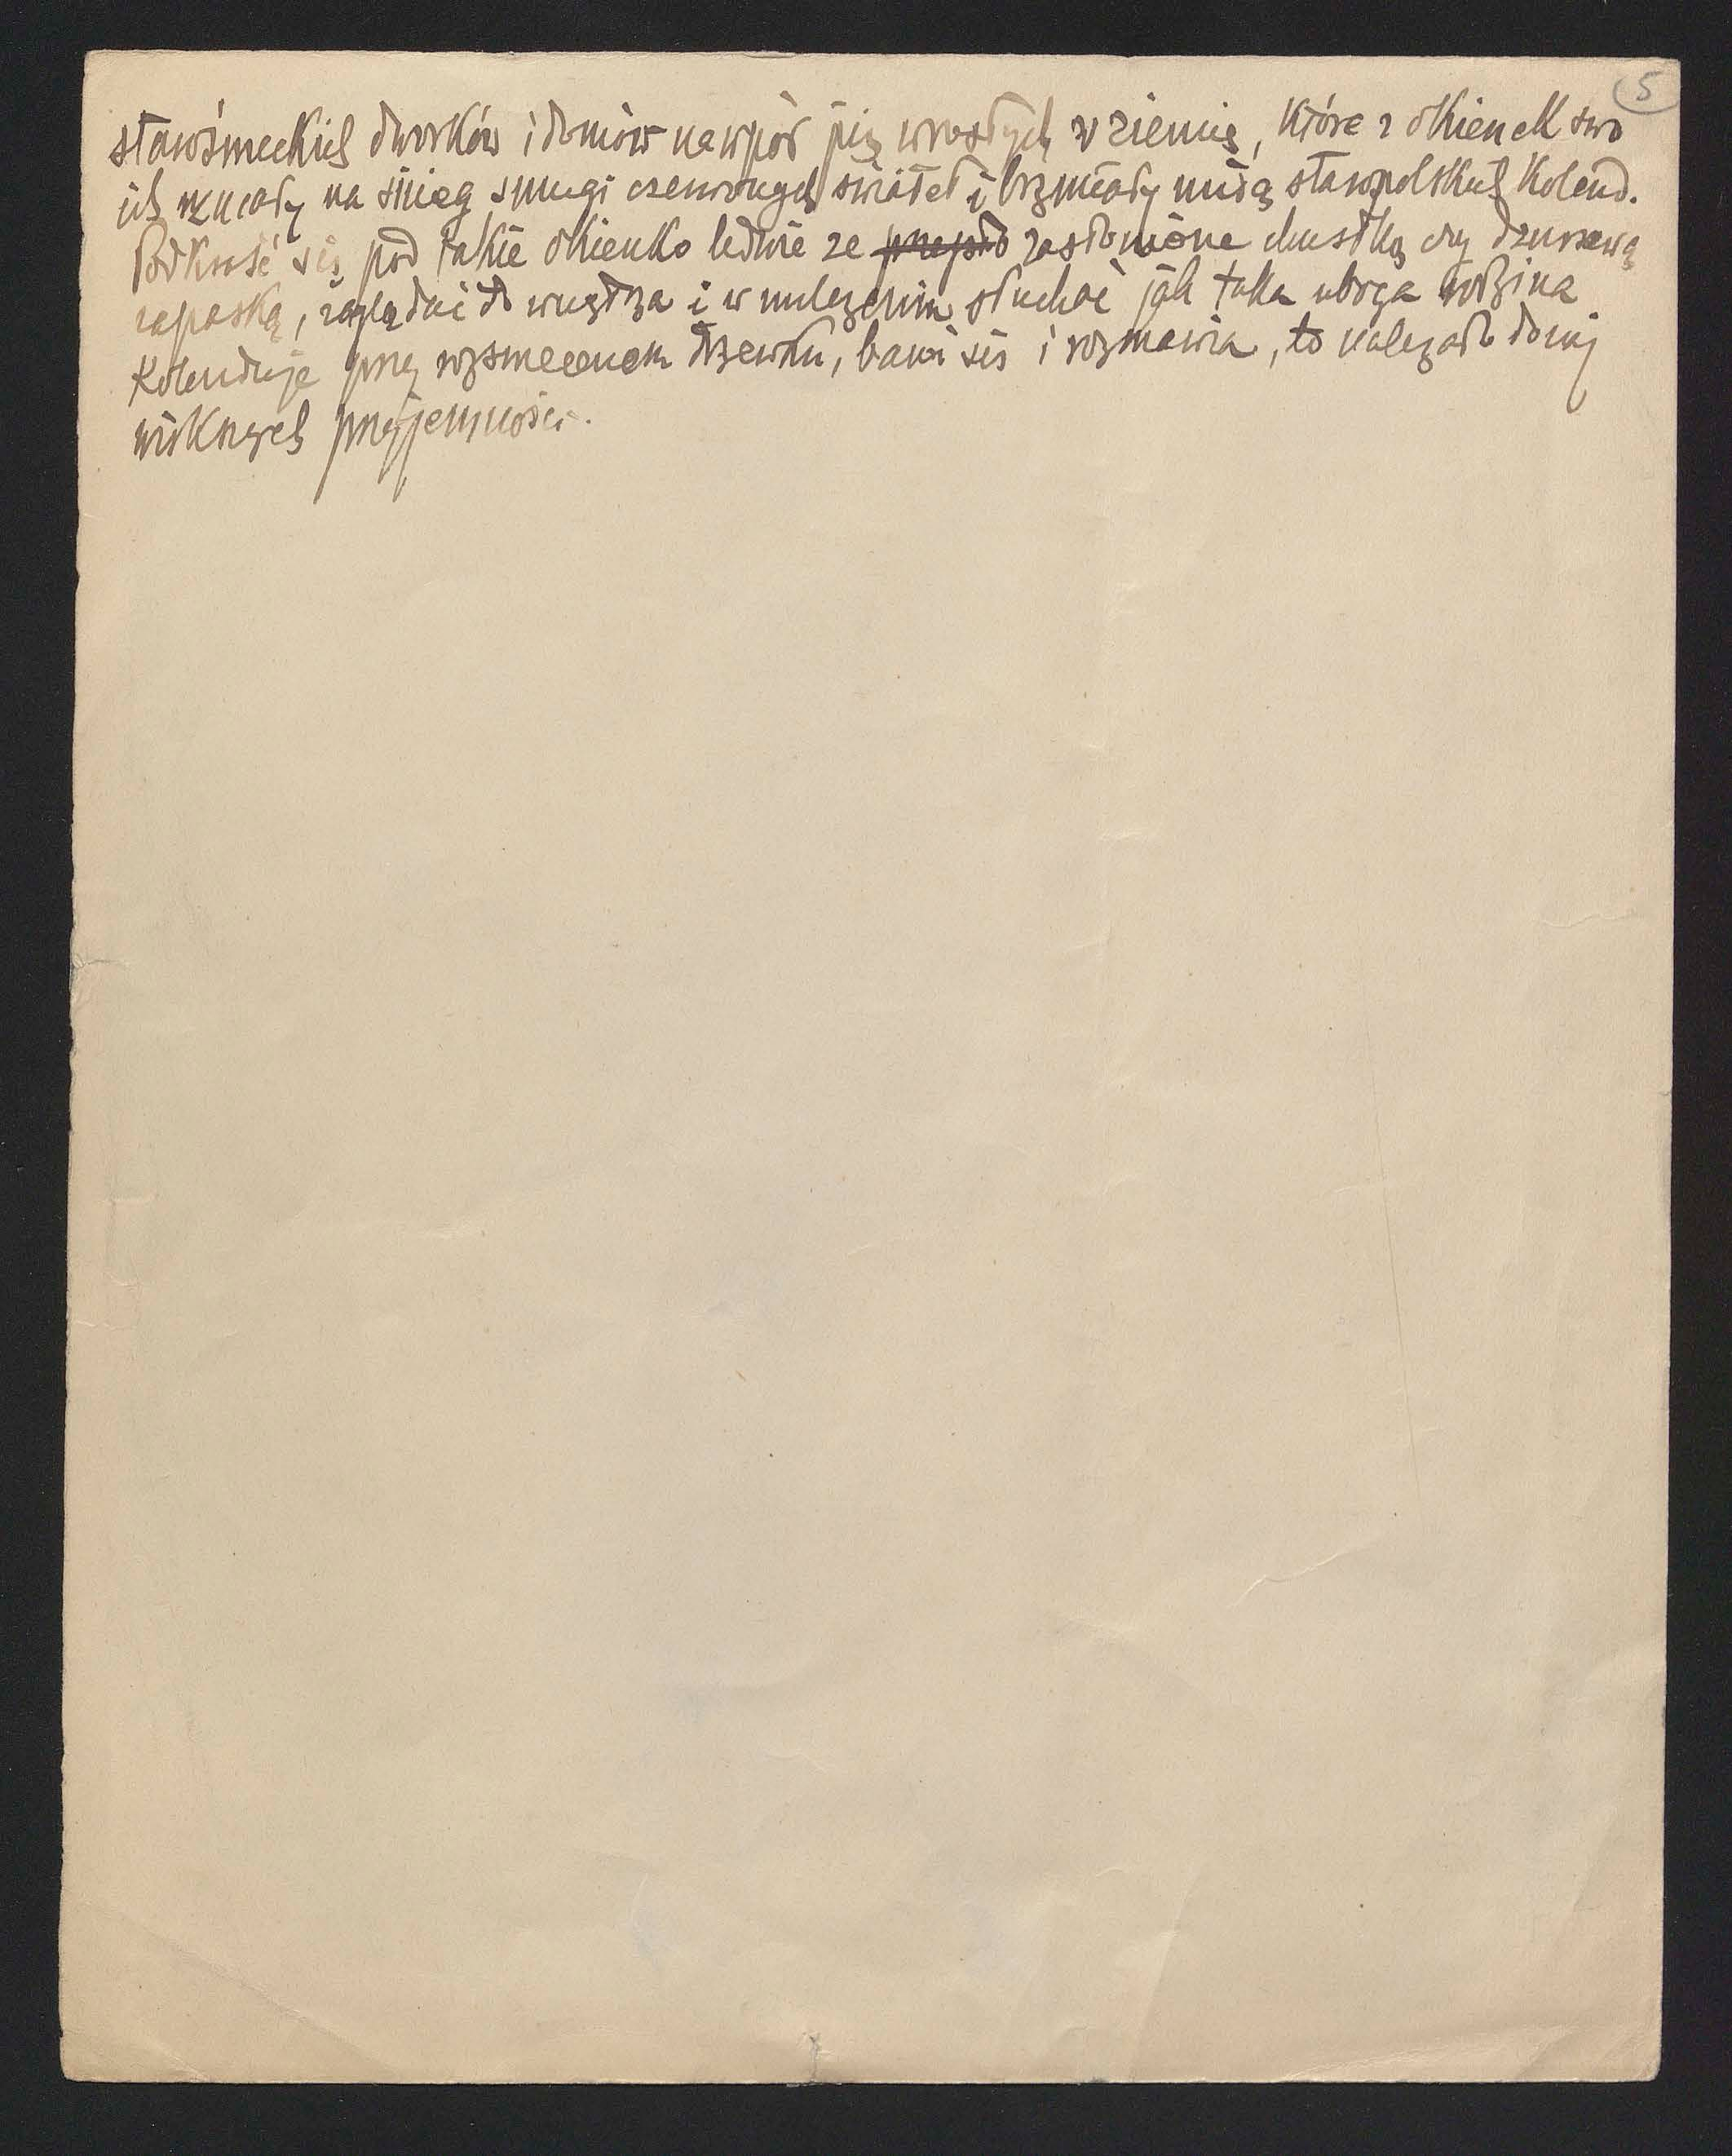 5
starośmieckich dworków i domów nawpół już wrosłych w ziemię, które z okienek swo
ich rzucały na śnieg smugi czerwonych świateł i brzmiały nutą staropolskich kolend.
Podkraść się pod takie okienko ledwie że zasłonione chustką czy dziurawą
zapaską, zaglądać do wnętrza i w milczeniu słuchać jak taka uboga rodzina
kolenduje przy rozśmieconem drzewku, bawi się i rozmawia, to należało do naj
większych przyjemności.